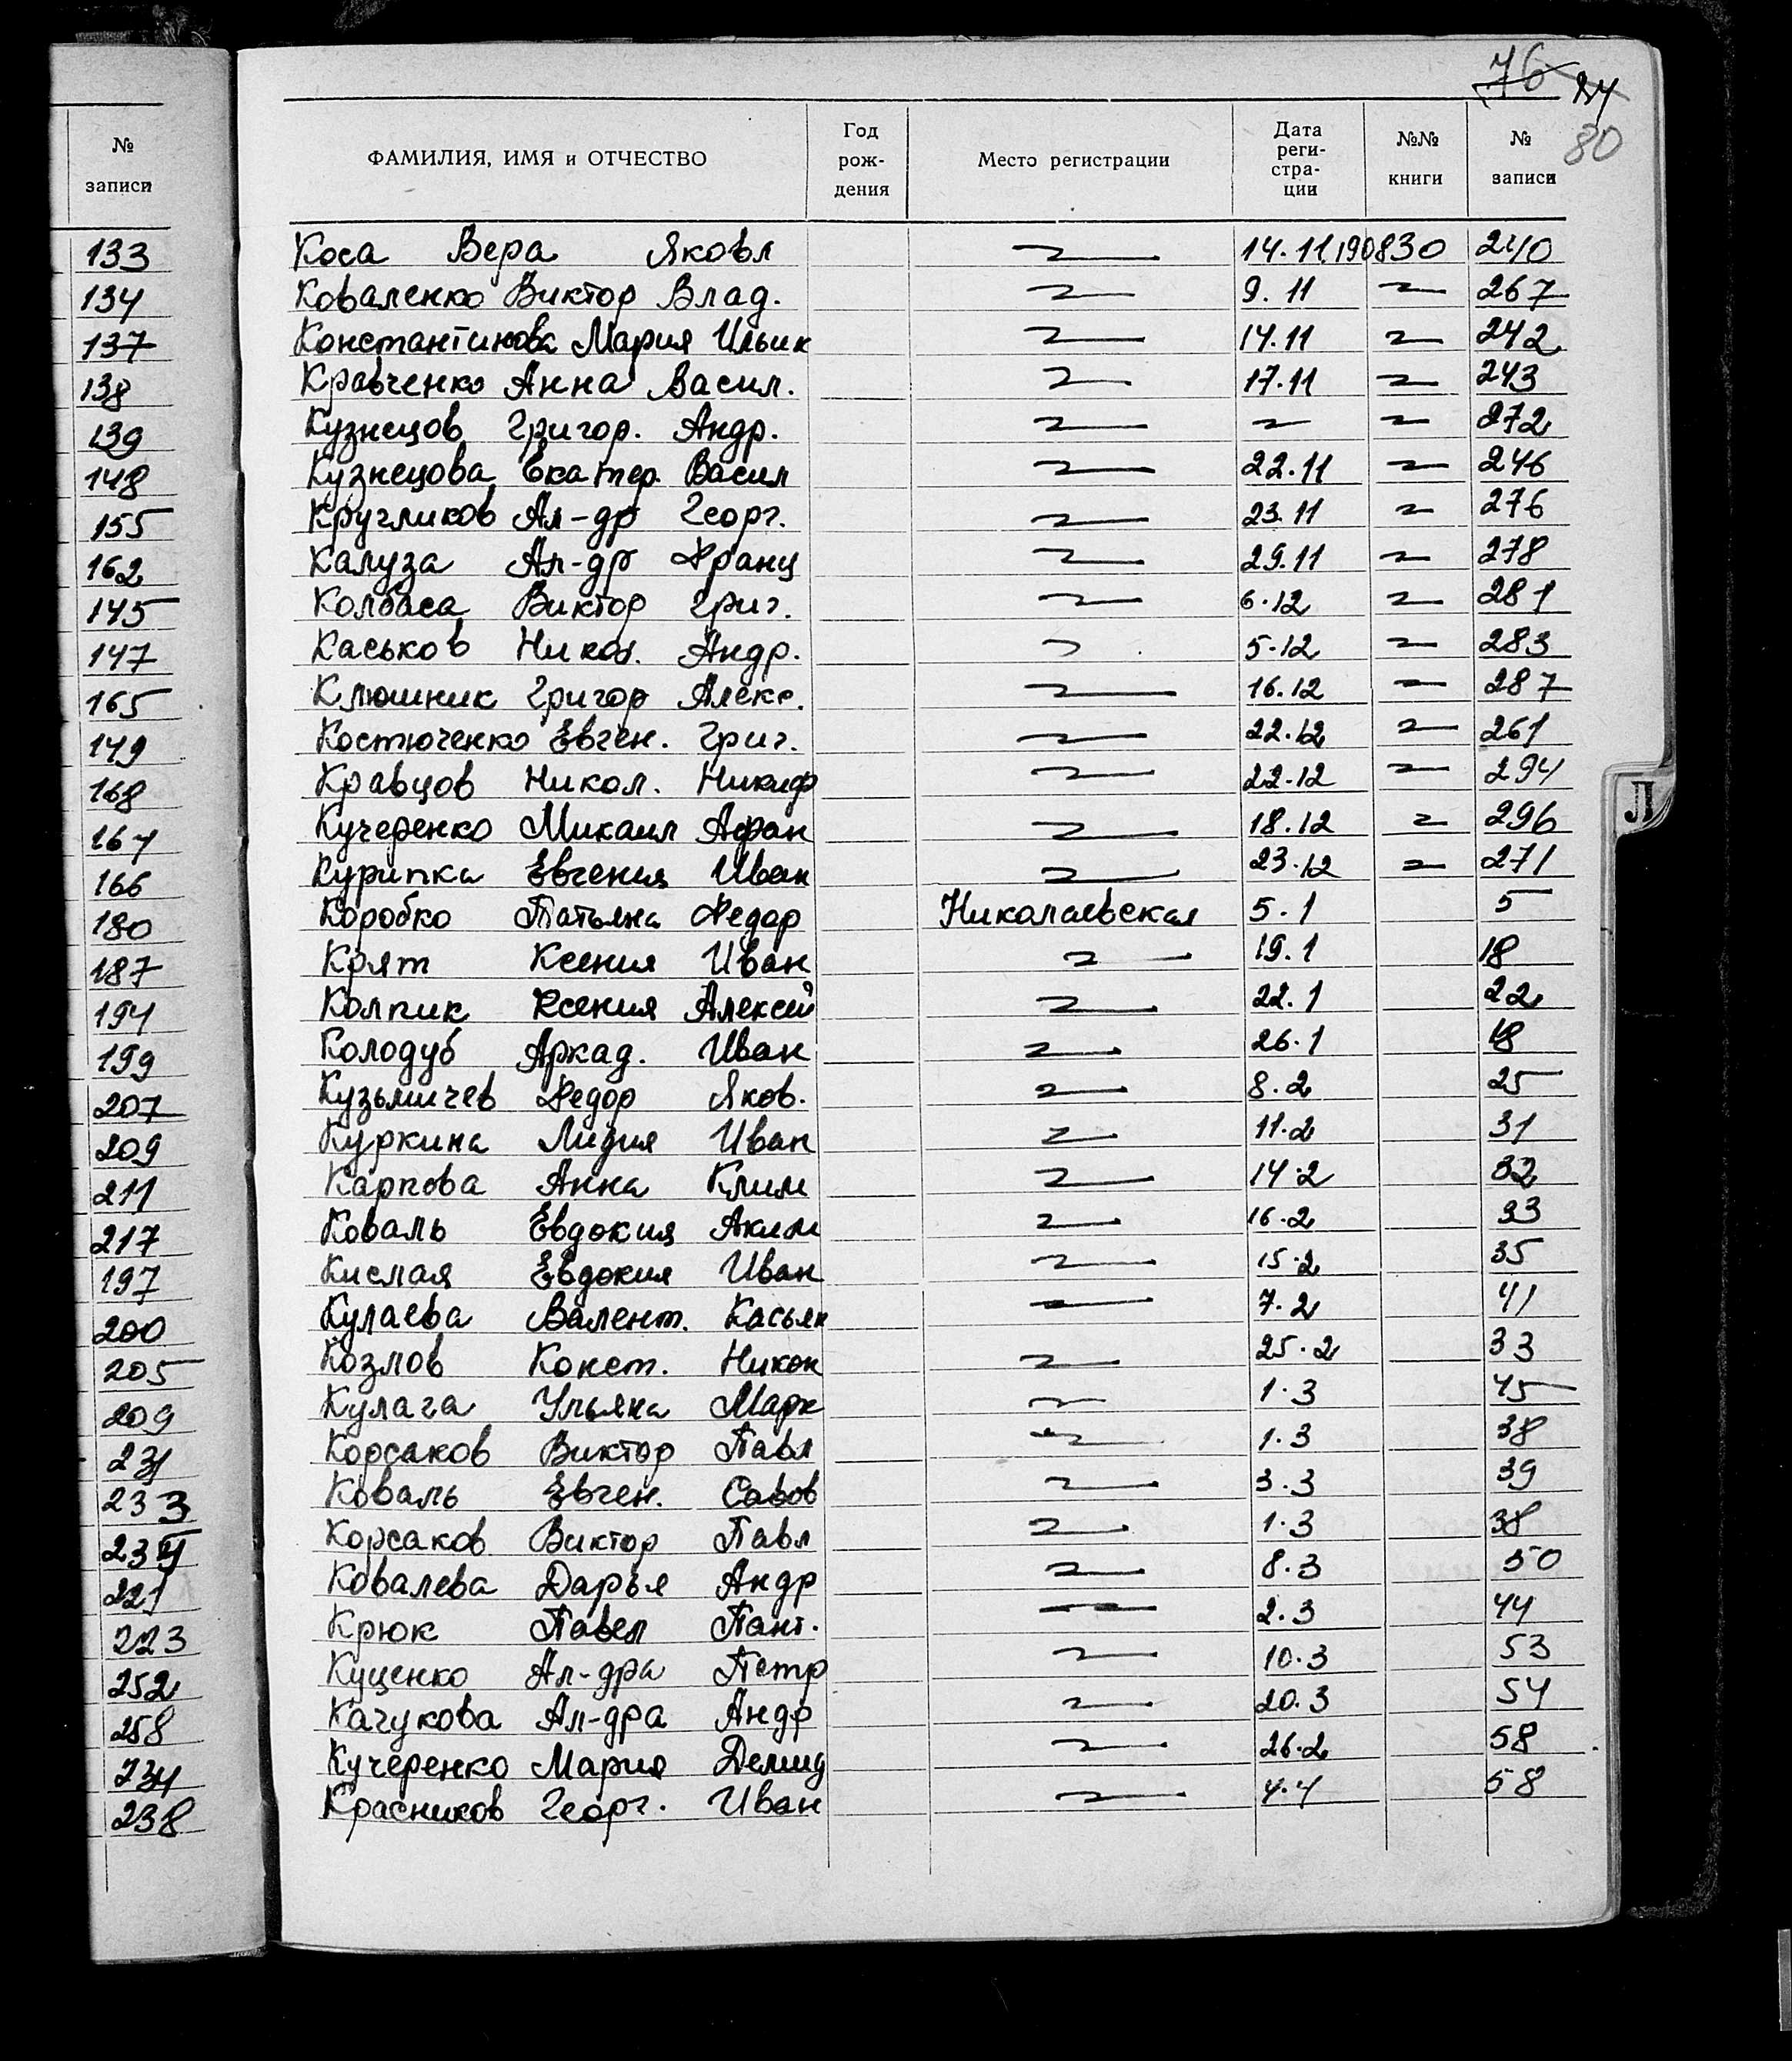 76 27
80
№ записи
ФАМИЛИЯ, ИМЯ и ОТЧЕСТВО Год рождения Место регистрации Дата реги-стра-ции №№ книги № записи
133 Коса Вера Яковл 14.11.1908 30 240
134 Коваленко Виктор Влад. 9.11 267
137 Константинова Мария Ильин 14.11 242
138 Кравченко Анна Васил. 17.11 243
139 Кузнецов Григор. Андр. 272
148 Кузнецова Екатер. Васил 22.11 246
155 Кругликов Ал-др Георг. 23.11 276
162 Калуза Ал-др Франц 29.11 278
145 Колбаса Виктор Григ. 6.12 281
147 Каськов Никол. Андр. 5.12 283
165 Клюшник Григор Алекс. 16.12 287
149 Костюченко Евген. Григ. 22.12 261
168 Кравцов Никол. Никиф 22.12 294
167 Кучеренко Михаил Афан 18.12 296
166 Курипка Евгения Иван 23.12 271
180 Коробко Татьяна Федор Николаевская 5.1 5
187 Коят Ксения Иван 19.1 18
194 Колпик Ксения Алексей 22.1 22
199 Колодуб Аркад. Иван 26.1 18
207 Кузьмичев Федор Яков. 8.2 25
209 Куркина Лидия Иван 11.2 31
211 Карпова Анна Клим 14.2 32
217 Коваль Евдокия Аким 16.2 33
197 Кислая Евдокия Иван 15.2 35
200 Кулаева Валент. Касьян 7.2 41
205 Козлов Конст. Никон 25.2 33
209 Кулага Ульяна Марк 1.3 45
231 Корсаков Виктор Павл 1.3 38
233 Коваль Евген. Савов 3.3 39
Корсаков Виктор Павл 1.3 38
221 Ковалева Дарья Андр 8.3 50
223 Крюк Павел Пант. 2.3 44
252 Куценко Ал-дра Петр 10.3 53
258 Качукова Ал-дра Андр 20.3 54
234 Кучеренко Мария Демид 26.2 58
238 Красников Георг. Иван 4.4 58
Л